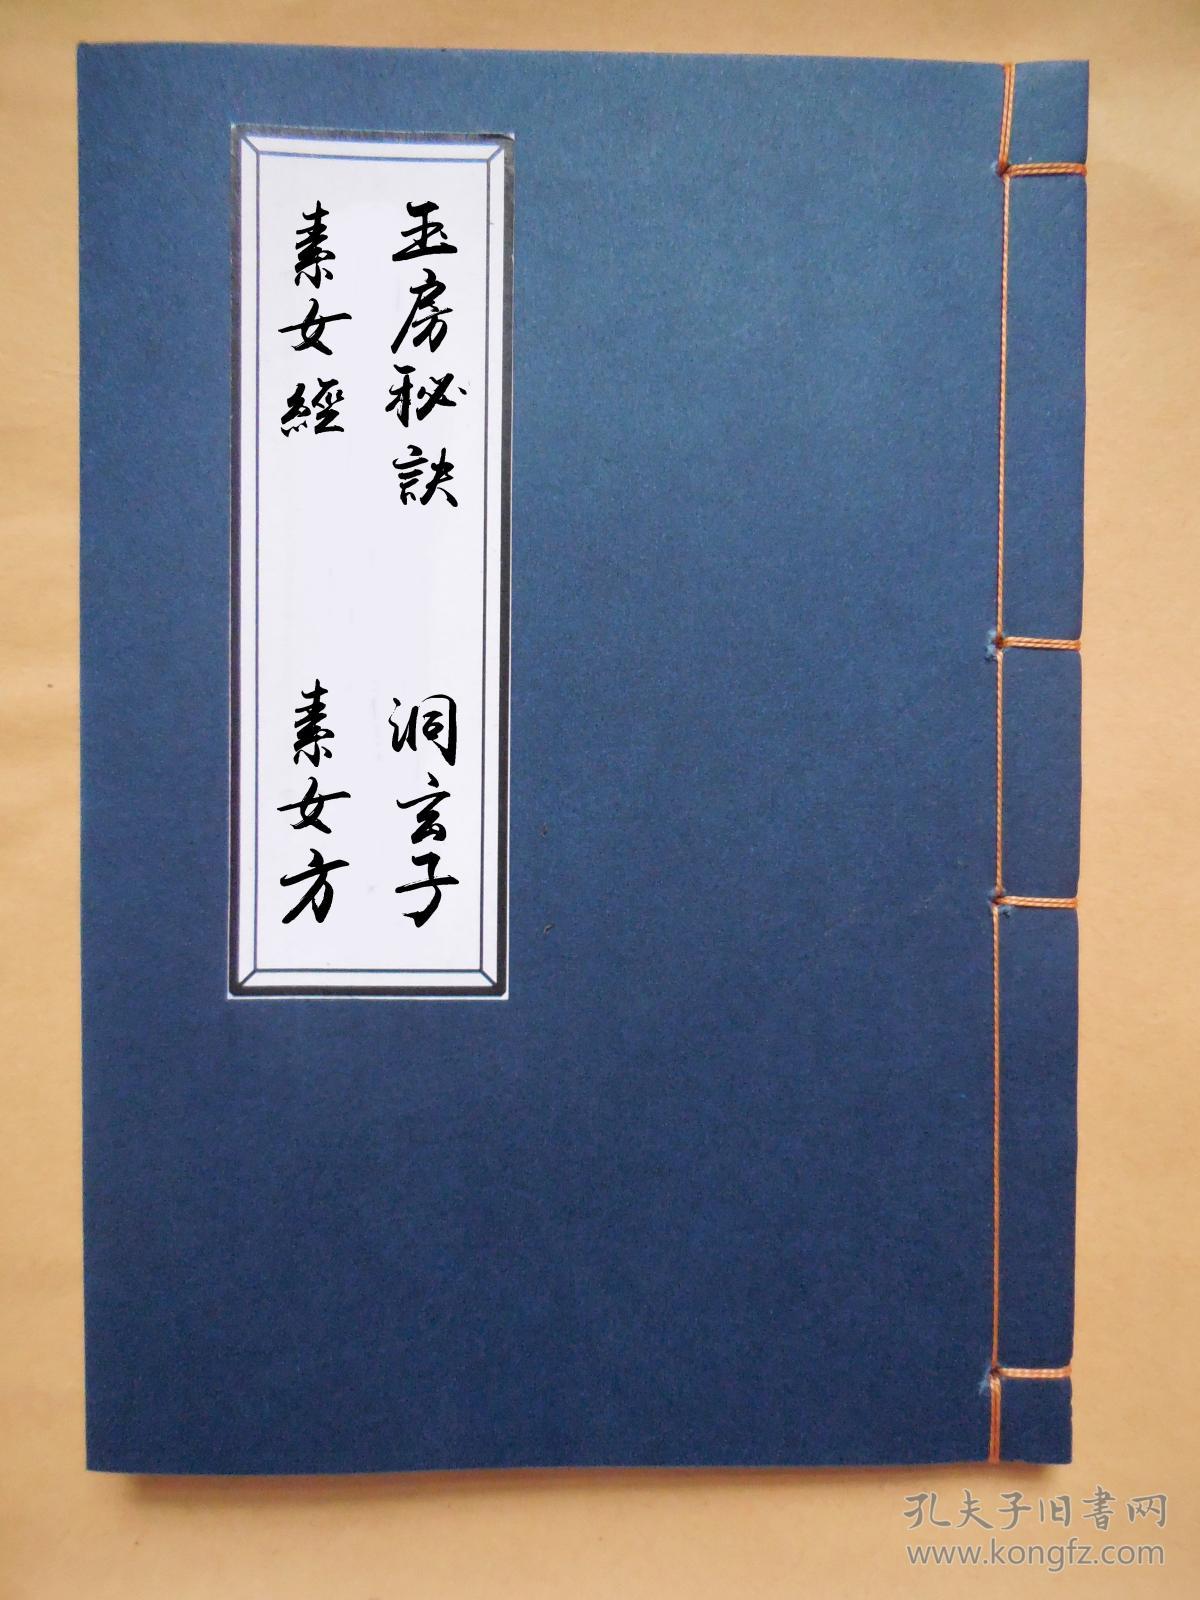 玉房秘訣 洞玄子
素女經 素女方
孔夫子旧書网
www.kongfz.com